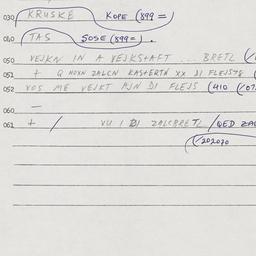 030 KRUSKE KOPE (899 =)
040 TAS SOSE (899=).
050 VEJKN IN A VEJKSTAFT ... BRETL
051 + Q HOVN ZALCN KASTERTN XX DI FLEJSTG
052 VOS ME VEJKT AJN DI FLEJS (410
060 —
061 + / VU I DI ZALCBRETL /QED
(202030